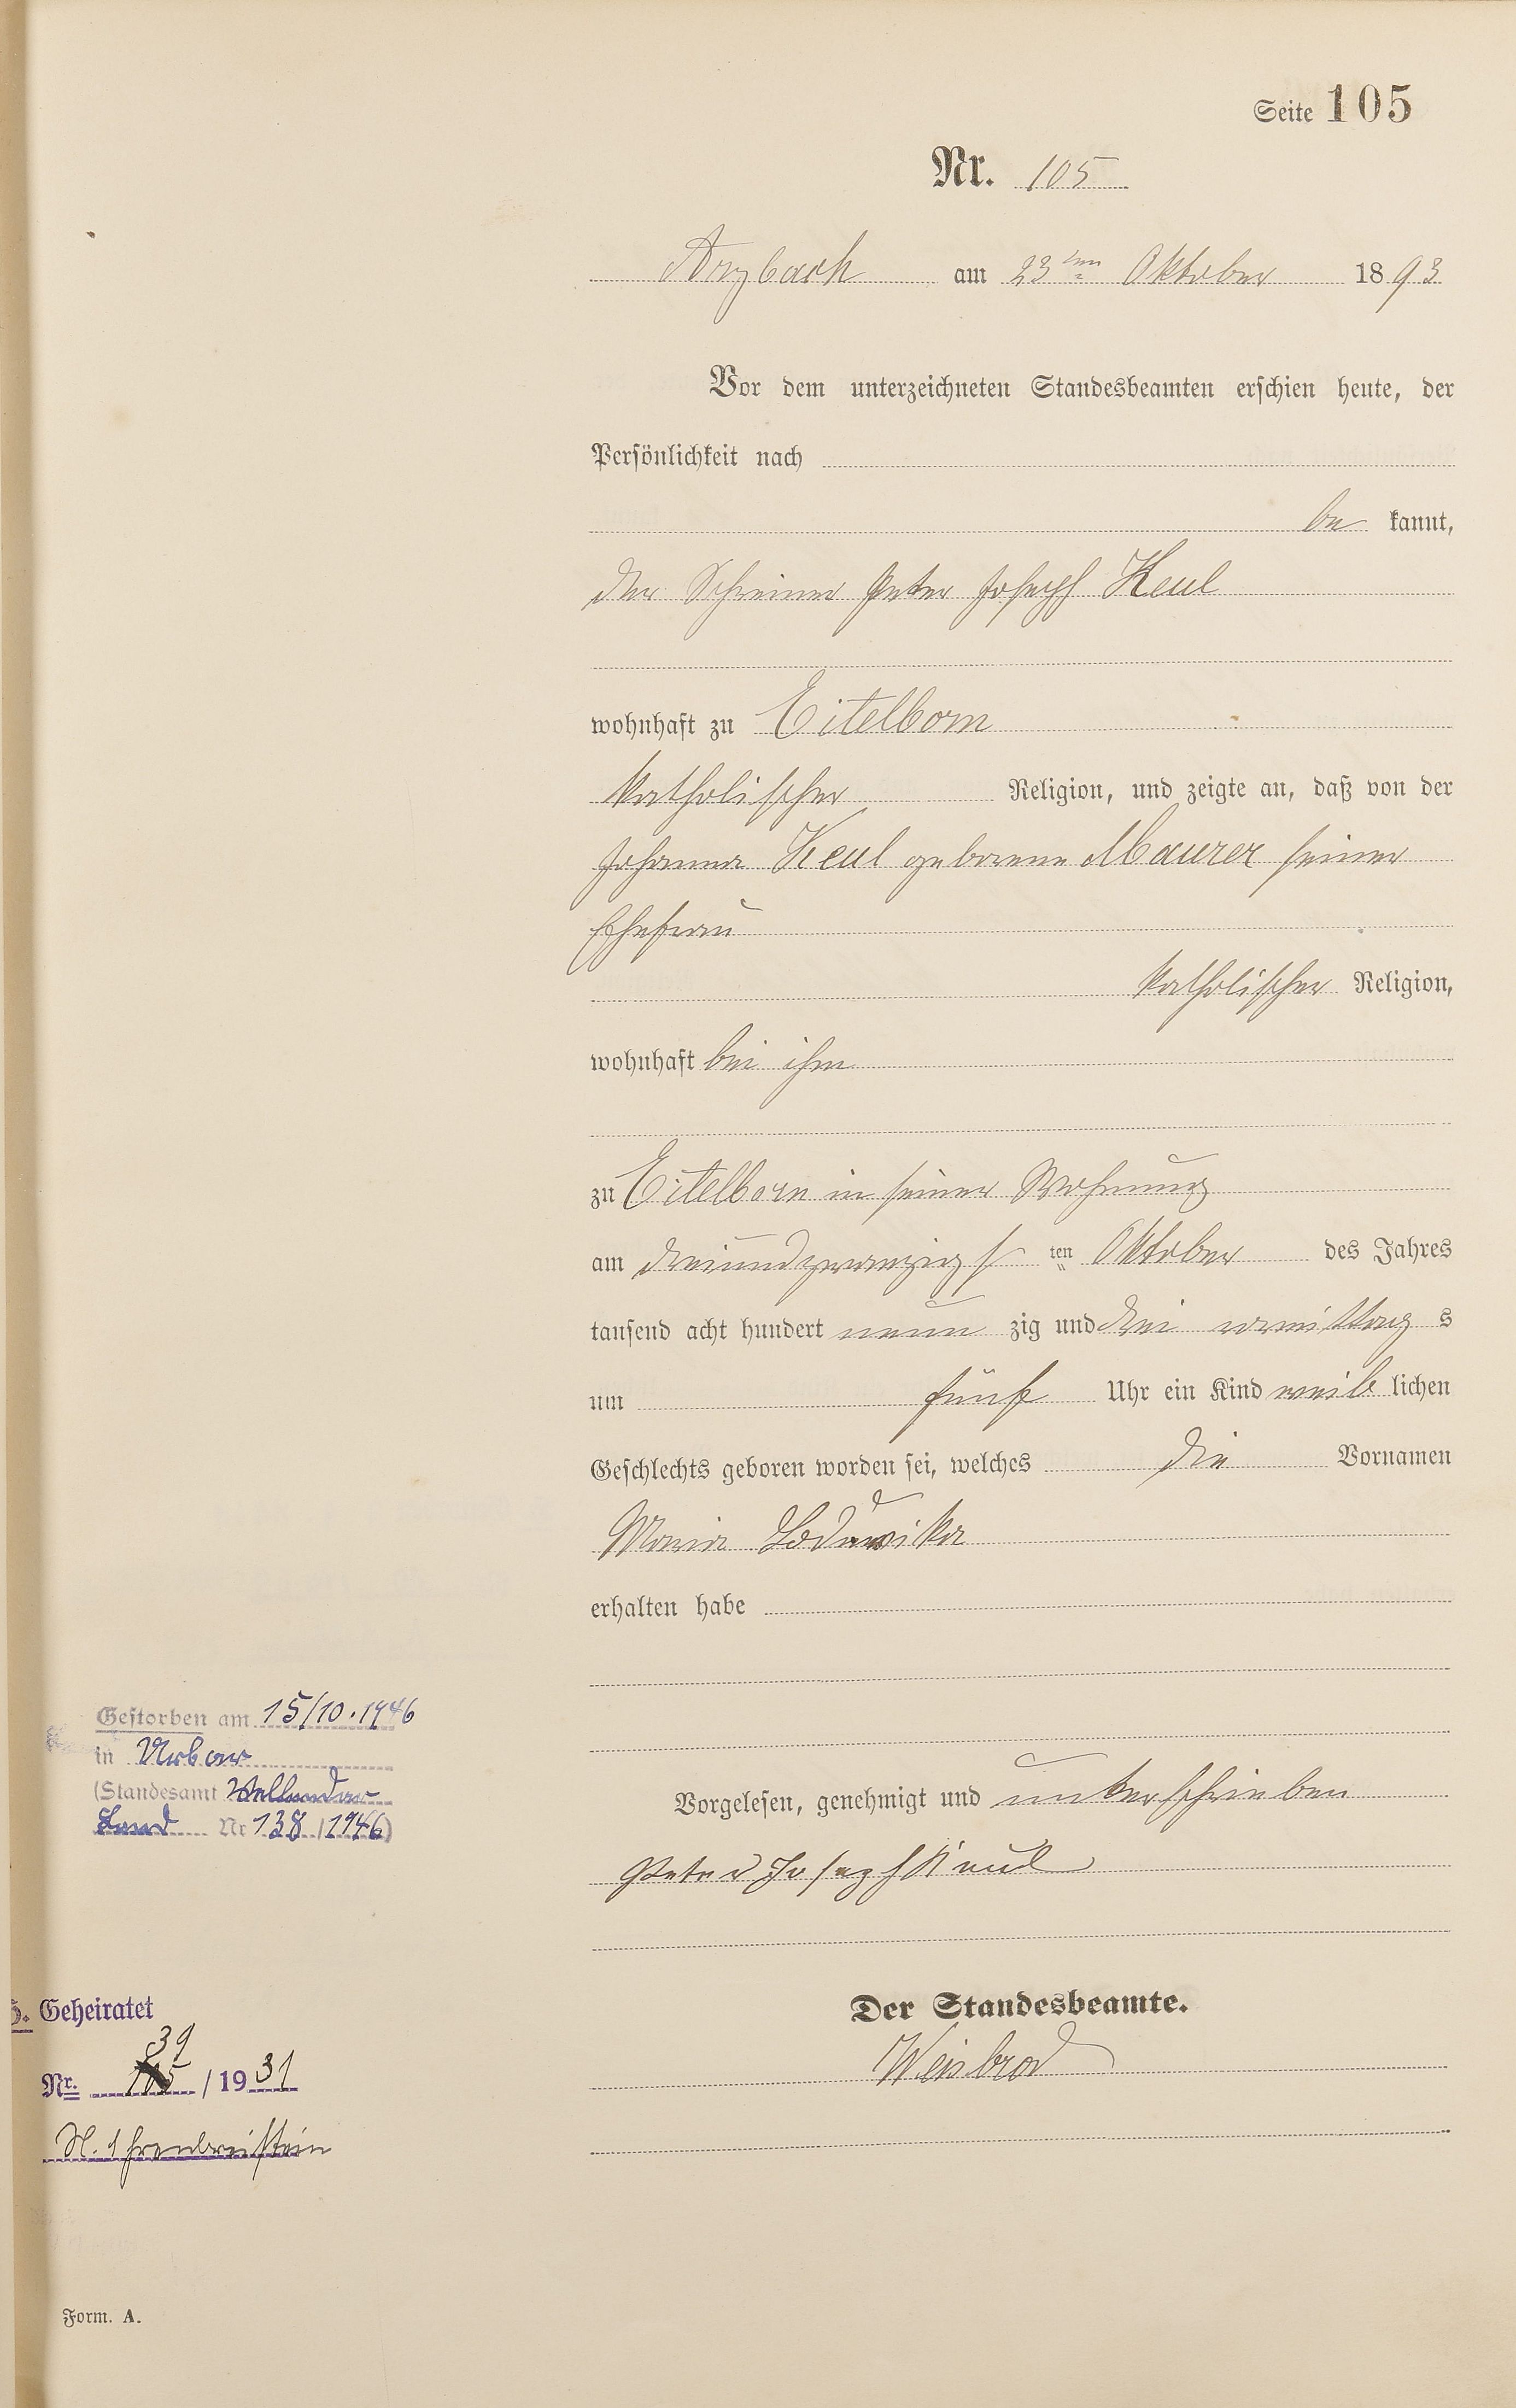 Seite 105
Nr. 105
Arzbach am 23ten Oktober 1893
Vor dem unterzeichneten Standesbeamten erschien heute, der
Persönlichkeit nach
be kannt,
der Schreiner Peter Joseph Keul
wohnhaft zu Eitelborn
katholischer Religion, und zeigte an, daß von der
Johanna Keul geborene Maurer seiner
Ehefrau
katholischer Religion,
wohnhaft bei ihm
zu Eitelborn in seiner Wohnung
am dreiundzwanzigs ten Oktober des Jahres
tausend acht hundert neun zig und drei vormittag s
um fünf Uhr ein Kind weib lichen
Geschlechts geboren worden sei, welches die Vornamen
Maria Loduwika
erhalten habe
Vorgelesen, genehmigt und unterschrieben
Peter Joseph Keul
Der Standesbeamte.
Weisbrod
Gestorben am 15/10.1946
in Urbar
(Standesamt Vallendar
Land Nr 138/1946)
Geheiratet
39
Nr. 105/1931
St. Ehrenbreitstein
Form. A.